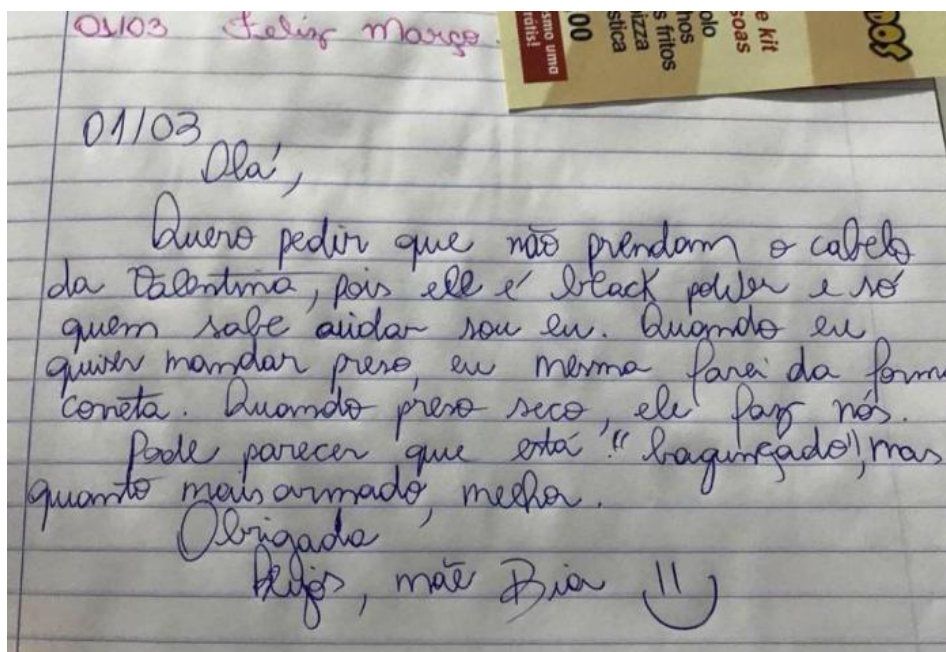 01/03 Feliz Março.
01/03
Olá,
Quero pedir que não prendam o cabelo
da Valentina, pois ele é black power e só
quem sabe cuidar sou eu. Quando eu
quiser mandar preso, eu mesma farei da form
correta. Quando preso seco, ele faz nós.
Pode parecer que está "bagunçado", mas
quanto mais armado, melhor.
Obrigada
Beijos, mãe Bia
e kit
soas
olo
hos
s fritos
pizza
stica
00
esmo uma
rátis!